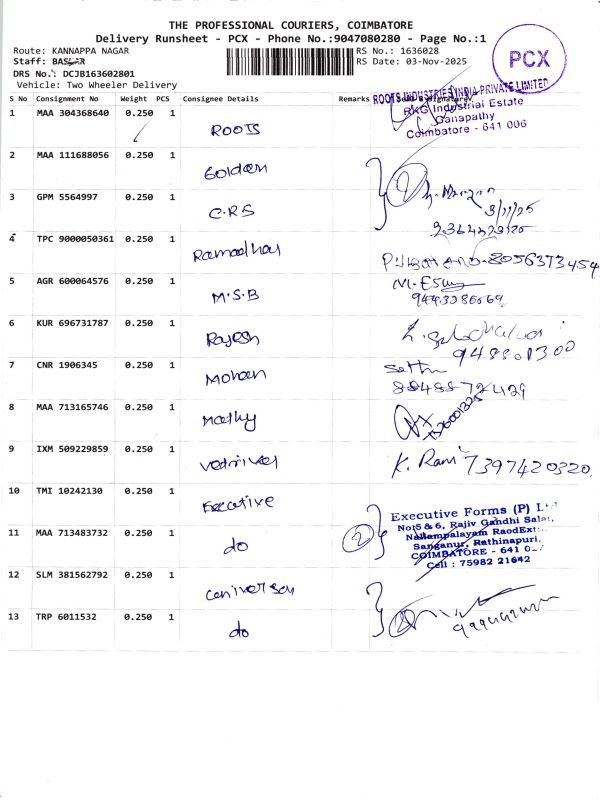 THE PROFESSIONAL COURIERS, COIMBATORE
Delivery Runsheet - PCX - Phone No.:9047080280 - Page No.:1
Route: KANNAPPA NAGAR
RS No.: 1636028
Staff: BASKAR
RS Date: 03-Nov-2025
DRS No.: DCJB163602801
Vehicle: Two Wheeler Delivery
PCX
S No Consignment No Weight PCS Consignee Details Remarks
ROOTS INDUSTRIES INDIA PRIVATE LIMITED
RKG Industrial Estate
Ganapathy
Coimbatore - 641 006
1 MAA 304368640 0.250 1 ROOTS
2 MAA 111688056 0.250 1 Golden
3 GPM 5564997 0.250 1 C.R.S
3/11/25
4 TPC 9000050361 0.250 1 Ramadhas
8056373454
5 AGR 600064576 0.250 1 M.S.B
6 KUR 696731787 0.250 1 Rajesh
7 CNR 1906345 0.250 1 Mohan
8 MAA 713165746 0.250 1 Mathy
9 IXM 509229859 0.250 1
K. Rani 7397420320
10 TMI 10242130 0.250 1 Executive
Executive Forms (P) Ltd
No:5 & 6, Rajiv Gandhi Salai,
Nallampalayam RaodExtn,
Sanganur, Rathinapuri,
COIMBATORE - 641 0
Cell : 75982 21642
11 MAA 713483732 0.250 1 do
2
12 SLM 381562792 0.250 1
13 TRP 6011532 0.250 1 do